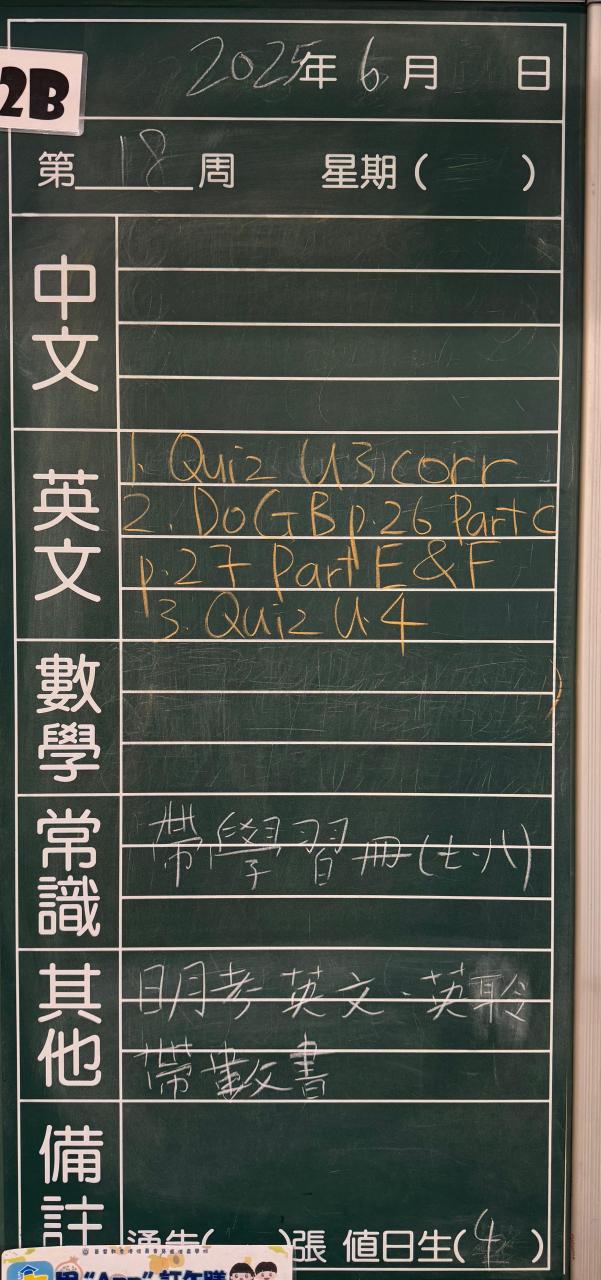 2B
2025年6月 日
第18周 星期( )
中文
英文
1. Quiz U3 corr
2. Do GB p.26 Part C
p.27 Part E & F
3. Quiz U.4
數學
常識
帶學習冊(七.八)
其他
明月考英文、英聆
帶數書
備註
通告( )張 值日生(4)
用“App”訂午膳